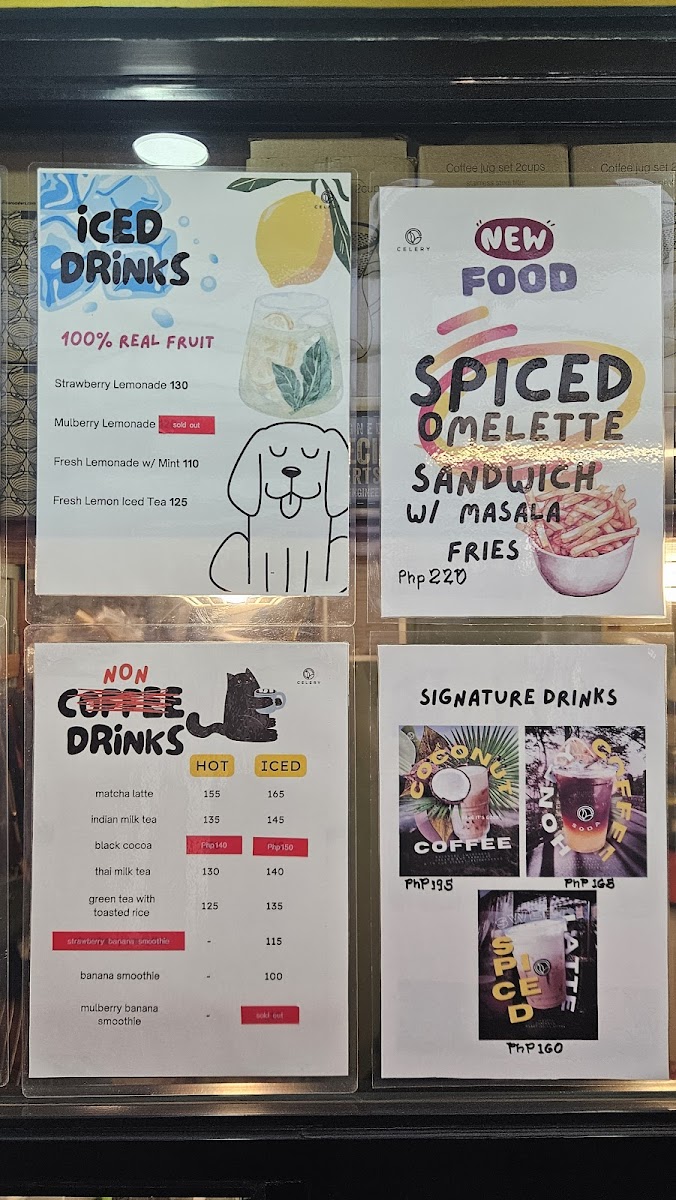 Coffee jug set 2cups
Coffee jug set 2
iCED
DRiNKS
CELERY
100% REAL FRUIT
Strawberry Lemonade 130
Mulberry Lemonade sold out
Fresh Lemonade w/ Mint 110
Fresh Lemon Iced Tea 125
CELERY
NEW
FOOD
SPICED
OMELETTE
SANDWICH
W/ MASALA
FRIES
Php 220
NON
COFFEE
DRiNKS
CELERY
HOT ICED
matcha latte 155 165
indian milk tea 135 145
black cocoa Php140 Php150
thai milk tea 130 140
green tea with
toasted rice 125 135
strawberry banana smoothie - 115
banana smoothie - 100
mulberry banana
smoothie - sold out
SIGNATURE DRINKS
COCONUT
COFFEE
PhP195
COFFEE
SODA
PhP165
SPICED
LATTE
PhP160